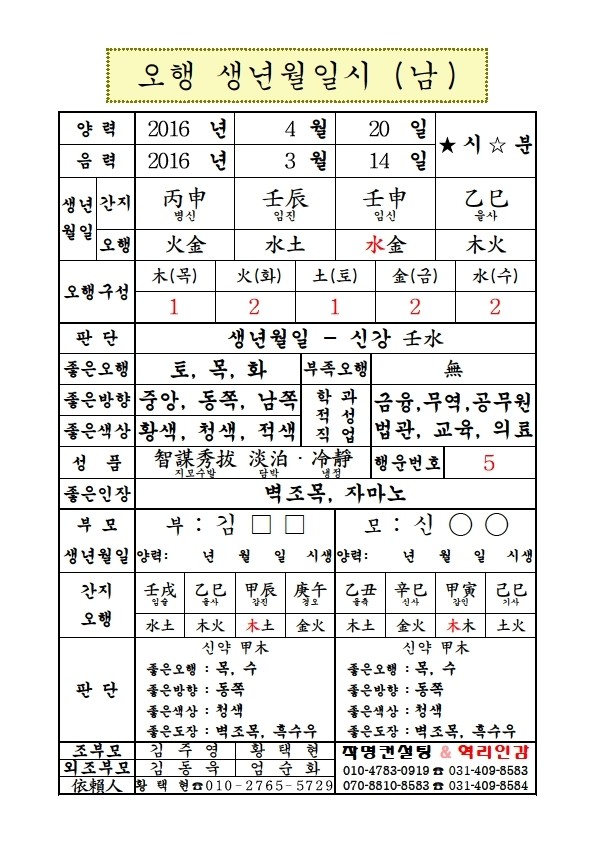 오행 생년월일시 (남)
양 력 2016 년 4 월 20 일 ★ 시 ☆ 분
음 력 2016 년 3 월 14 일
생년월일 간지 丙申 壬辰 壬申 乙巳
병신 임진 임신 을사
오행 火金 水土 水金 木火
오행구성 木(목) 火(화) 土(토) 金(금) 水(수)
1 2 1 2 2
판 단 생년월일 - 신강 壬水
좋은오행 토, 목, 화 부족오행 無
좋은방향 중앙, 동쪽, 남쪽 학과 적성 직업 금융,무역,공무원
좋은색상 황색, 청색, 적색 법관, 교육, 의료
성 품 智謀秀拔 淡泊·冷靜 행운번호 5
지모수발 담박 냉정
좋은인장 벽조목, 자마노
부 모 부 : 김 □ □ 모 : 신 ○ ○
생년월일 양력: 년 월 일 시생 양력: 년 월 일 시생
간지 壬戌 乙巳 甲辰 庚午 乙丑 辛巳 甲寅 己巳
임술 을사 갑진 경오 을축 신사 갑인 기사
오행 水土 木火 木土 金火 木土 金火 木木 土火
판 단 신약 甲木 신약 甲木
좋은오행 : 목, 수 좋은오행 : 목, 수
좋은방향 : 동쪽 좋은방향 : 동쪽
좋은색상 : 청색 좋은색상 : 청색
좋은도장 : 벽조목, 흑수우 좋은도장 : 벽조목, 흑수우
조부모 김 주 영 황 택 현 작명컨설팅 & 역리인감
외조부모 김 동 욱 엄 순 화 010-4783-0919 ☎ 031-409-8583
依賴人 황 택 현☎010-2765-5729 070-8810-8583 ☎ 031-409-8584